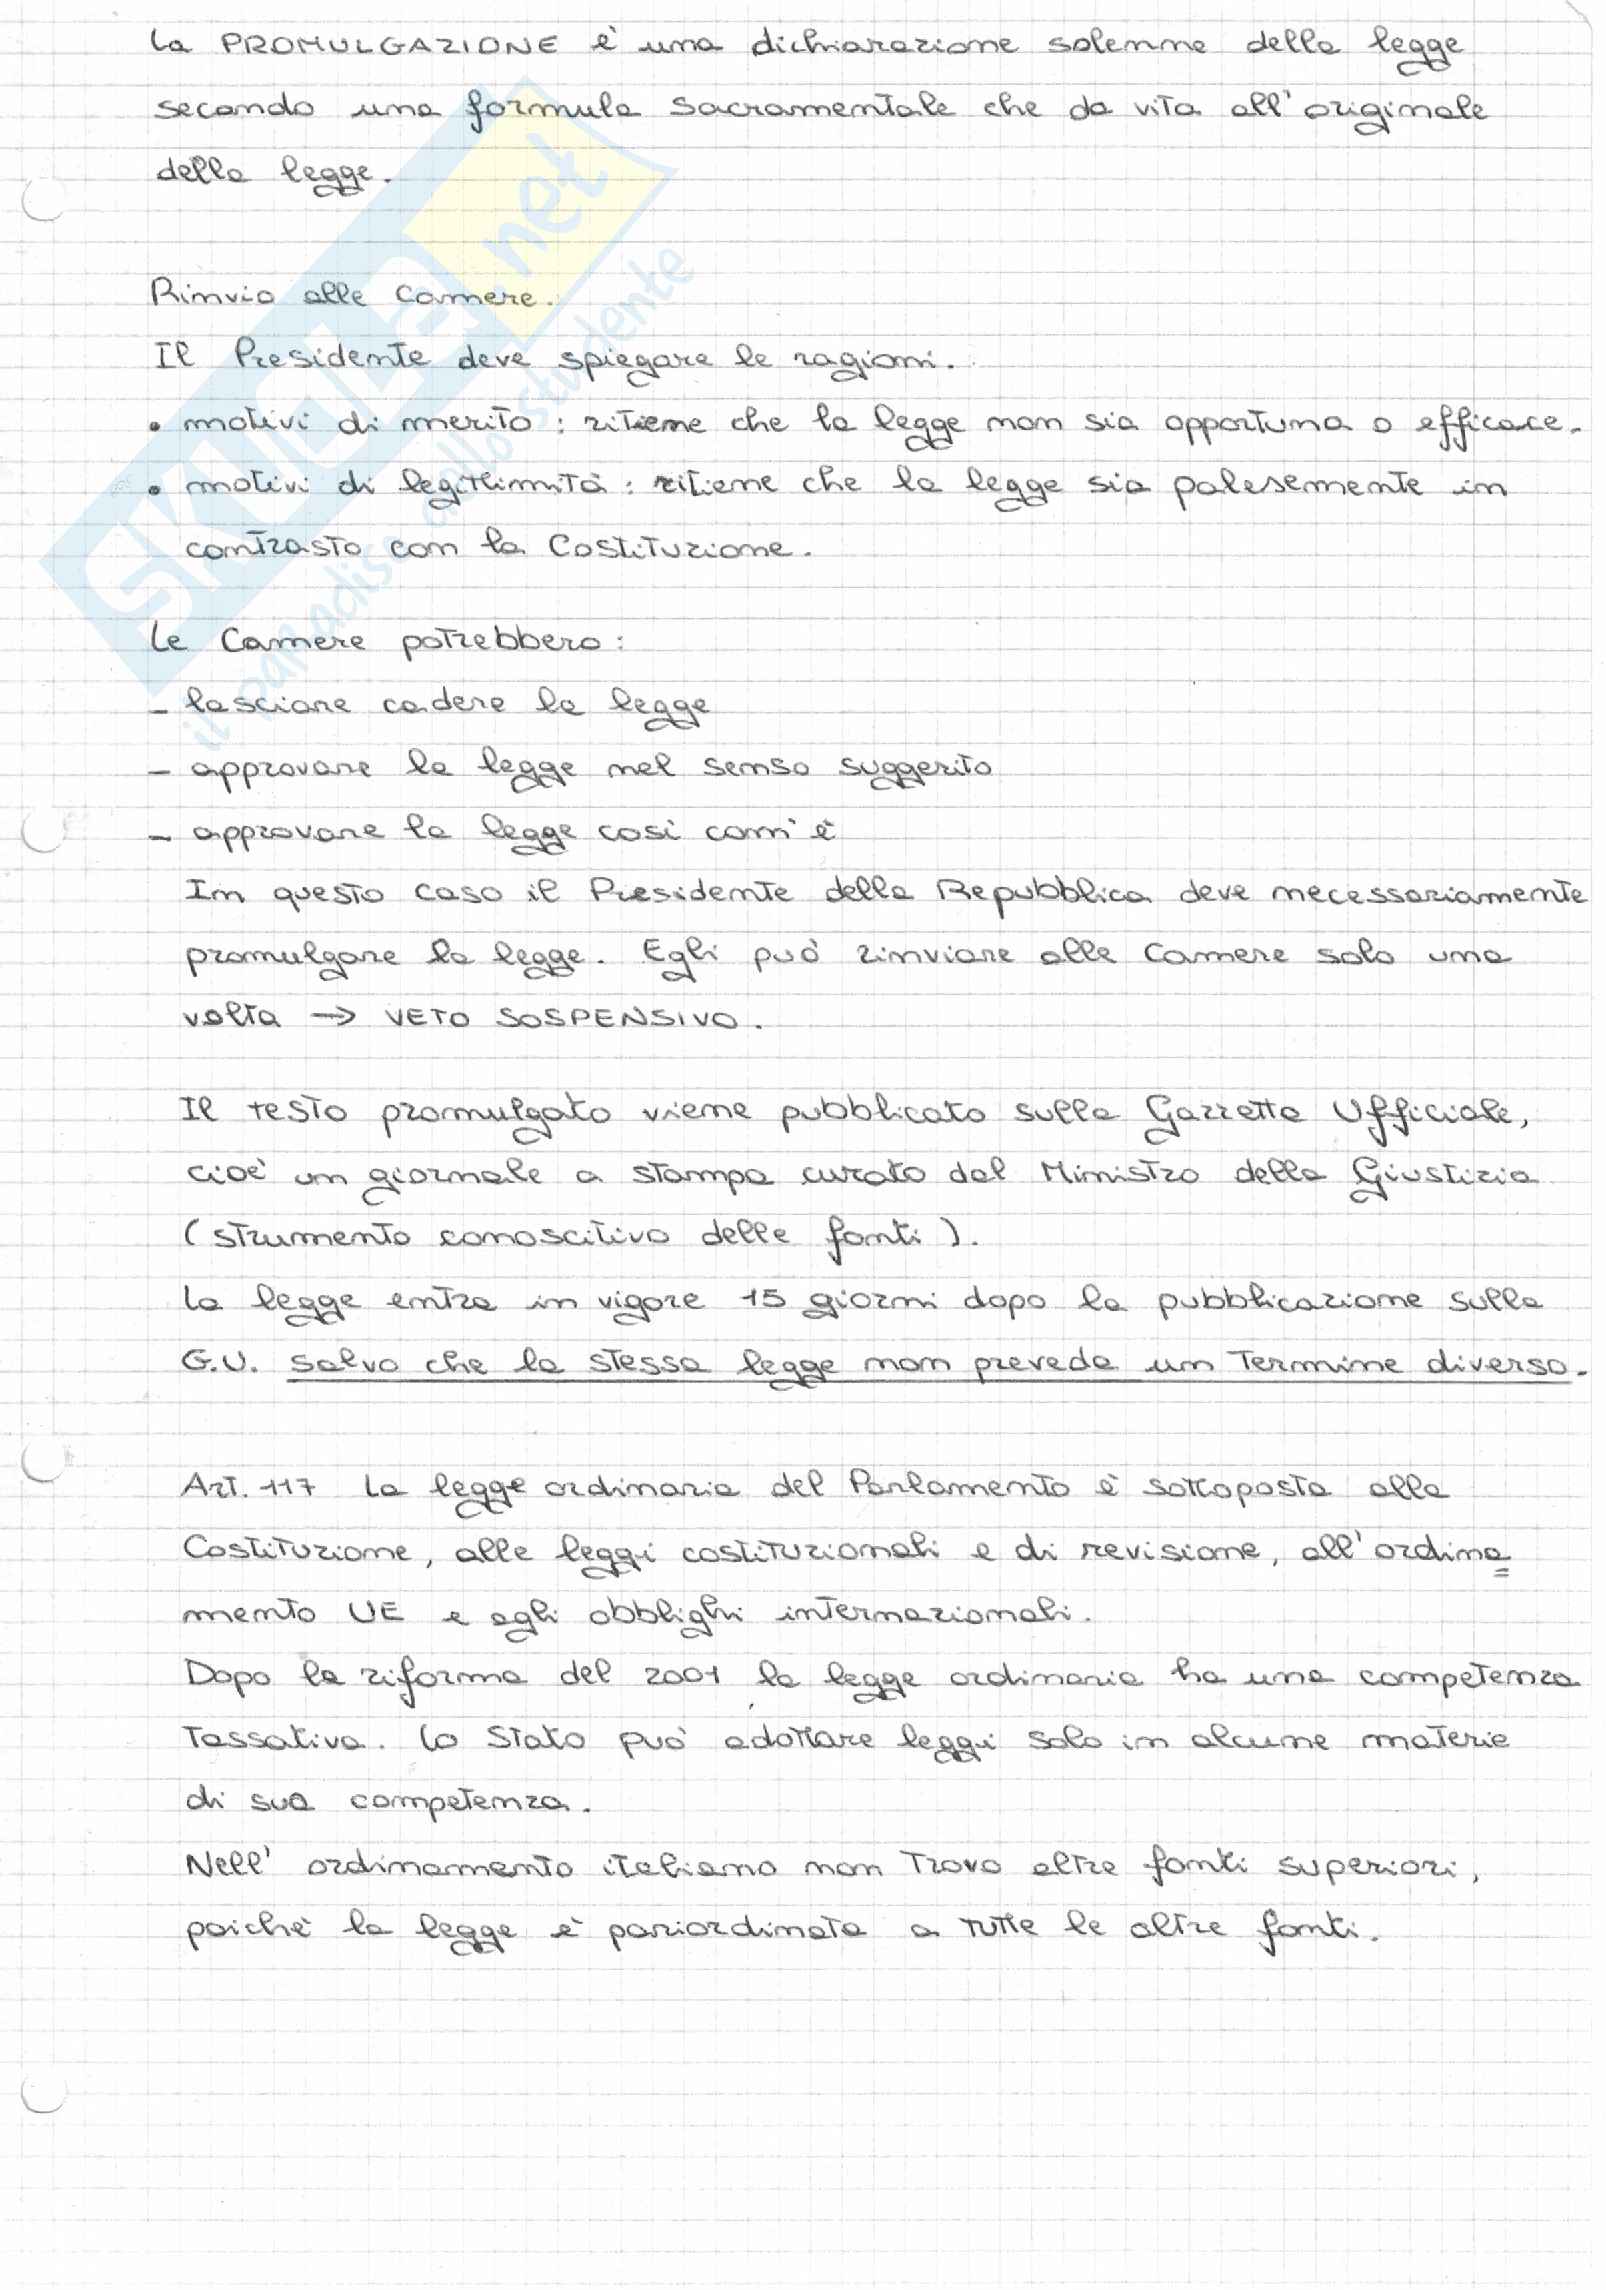 La PROMULGAZIONE è una dichiarazione solenne della legge
secondo una formula sacramentale che da vita all'originale
della legge.
Rinvio alle Camere.
Il Presidente deve spiegare le ragioni.
• motivi di merito : ritiene che la legge non sia opportuna o efficace.
• motivi di legittimità : ritiene che la legge sia palesemente in
contrasto con la Costituzione.
Le Camere potrebbero :
- lasciare cadere la legge
- approvare la legge nel senso suggerito
- approvare la legge così com'è
In questo caso il Presidente della Repubblica deve necessariamente
promulgare la legge. Egli può rinviare alle Camere solo una
volta → VETO SOSPENSIVO.
Il testo promulgato viene pubblicato sulla Gazzetta Ufficiale,
cioè un giornale a stampa curato dal Ministro della Giustizia
(strumento conoscitivo delle fonti).
La legge entra in vigore 15 giorni dopo la pubblicazione sulla
G.U. salvo che la stessa legge non preveda un termine diverso.
Art. 117 La legge ordinaria del Parlamento è sottoposta alla
Costituzione, alle leggi costituzionali e di revisione, all'ordina
mento UE e agli obblighi internazionali.
Dopo la riforma del 2001 la legge ordinaria ha una competenza
tassativa. Lo Stato può adottare leggi solo in alcune materie
di sua competenza.
Nell' ordinamento italiano non trovo altre fonti superiori,
poiché la legge è pariordinata a tutte le altre fonti.
SKUOLA.net
il paradiso dello studente